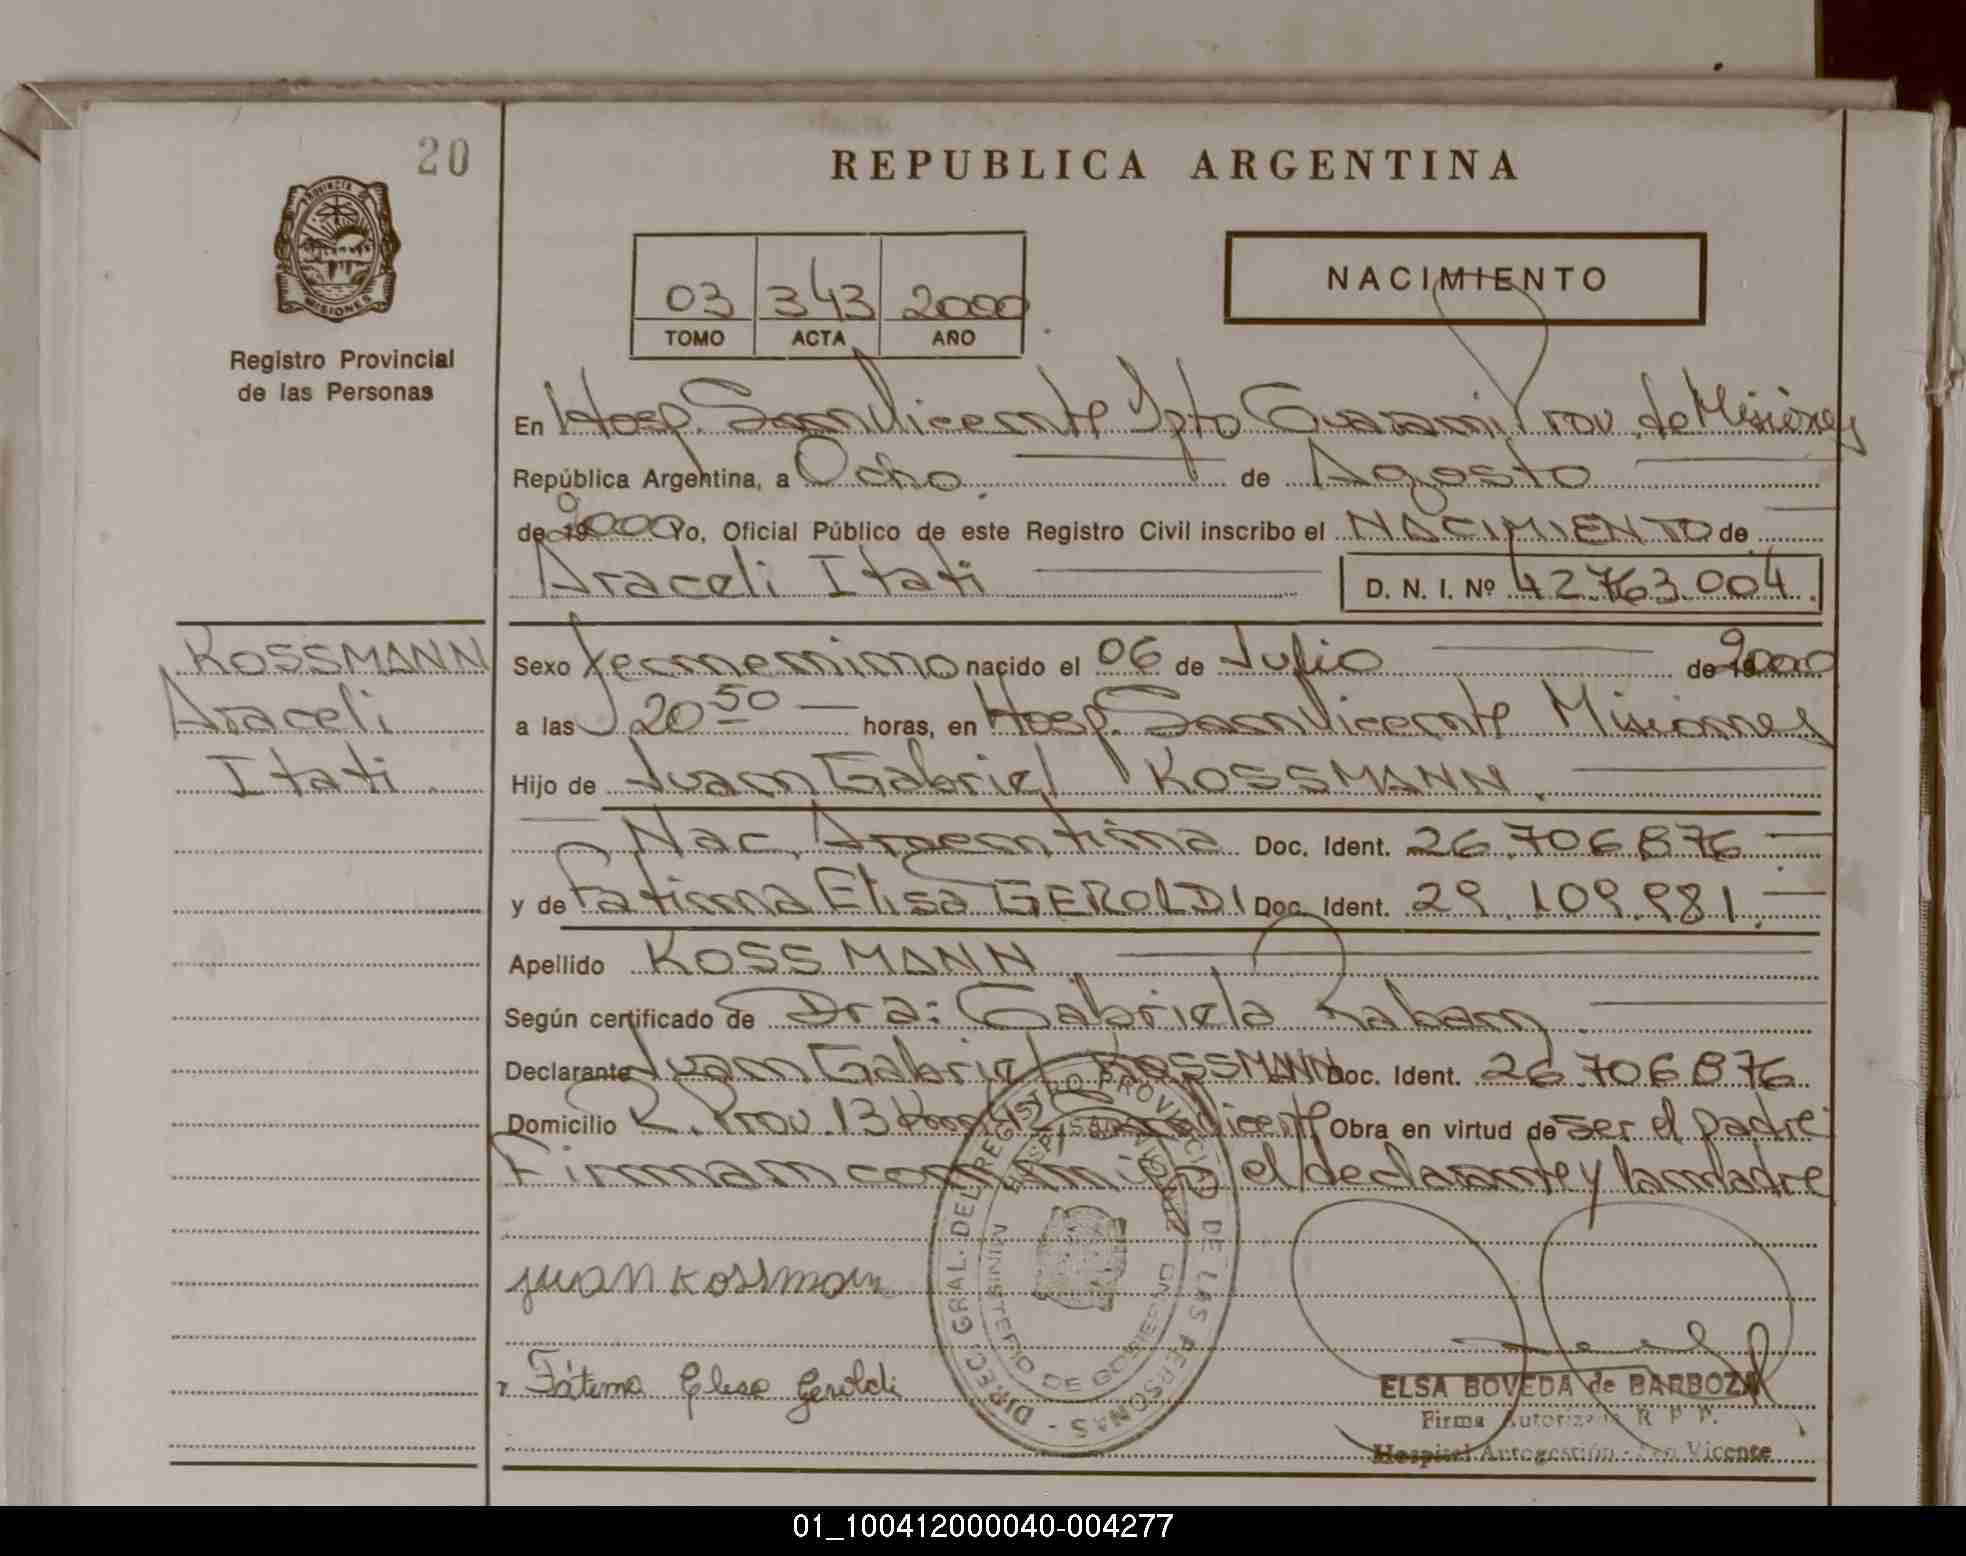 20
REPUBLICA ARGENTINA
PROVINCIA
MISIONES
Registro Provincial
de las Personas
03 343 2000
TOMO ACTA AÑO
NACIMIENTO
En Hosp. San Vicente Dpto Guarani Prov. de Misiones
República Argentina, a Ocho de Agosto
de 2000 Yo, Oficial Público de este Registro Civil inscribo el NACIMIENTO de
Araceli Itati D. N. I. Nº 42.763.004.
KOSSMANN
Araceli
Itati
Sexo femenino nacido el 06 de Julio de 2000
a las 20 50 horas, en Hosp. San Vicente Misiones
Hijo de Juan Gabriel KOSSMANN.
Nac. Argentina Doc. Ident. 26.706.876
y de Fatima Elisa GEROLDI Doc. Ident. 29.109.981.
Apellido KOSSMANN
Según certificado de Dra: Gabriela
Declarante Juan Gabriel KOSSMANN Doc. Ident. 26.706.876
Domicilio R. Prov. 13 Km 12 San Vicente Obra en virtud de ser el padre
Firman conmigo el declarante y la madre
DIREC. GRAL. DEL REGISTRO PROVINCIAL DE LAS PERSONAS
MINISTERIO DE GOBIERNO
juan Kossmann
Fátima Elisa Geroldi
ELSA BOVEDA de BARBOZA
Firma Autorizada R. P. P.
Hospital Autogestión - San Vicente
01_100412000040-004277